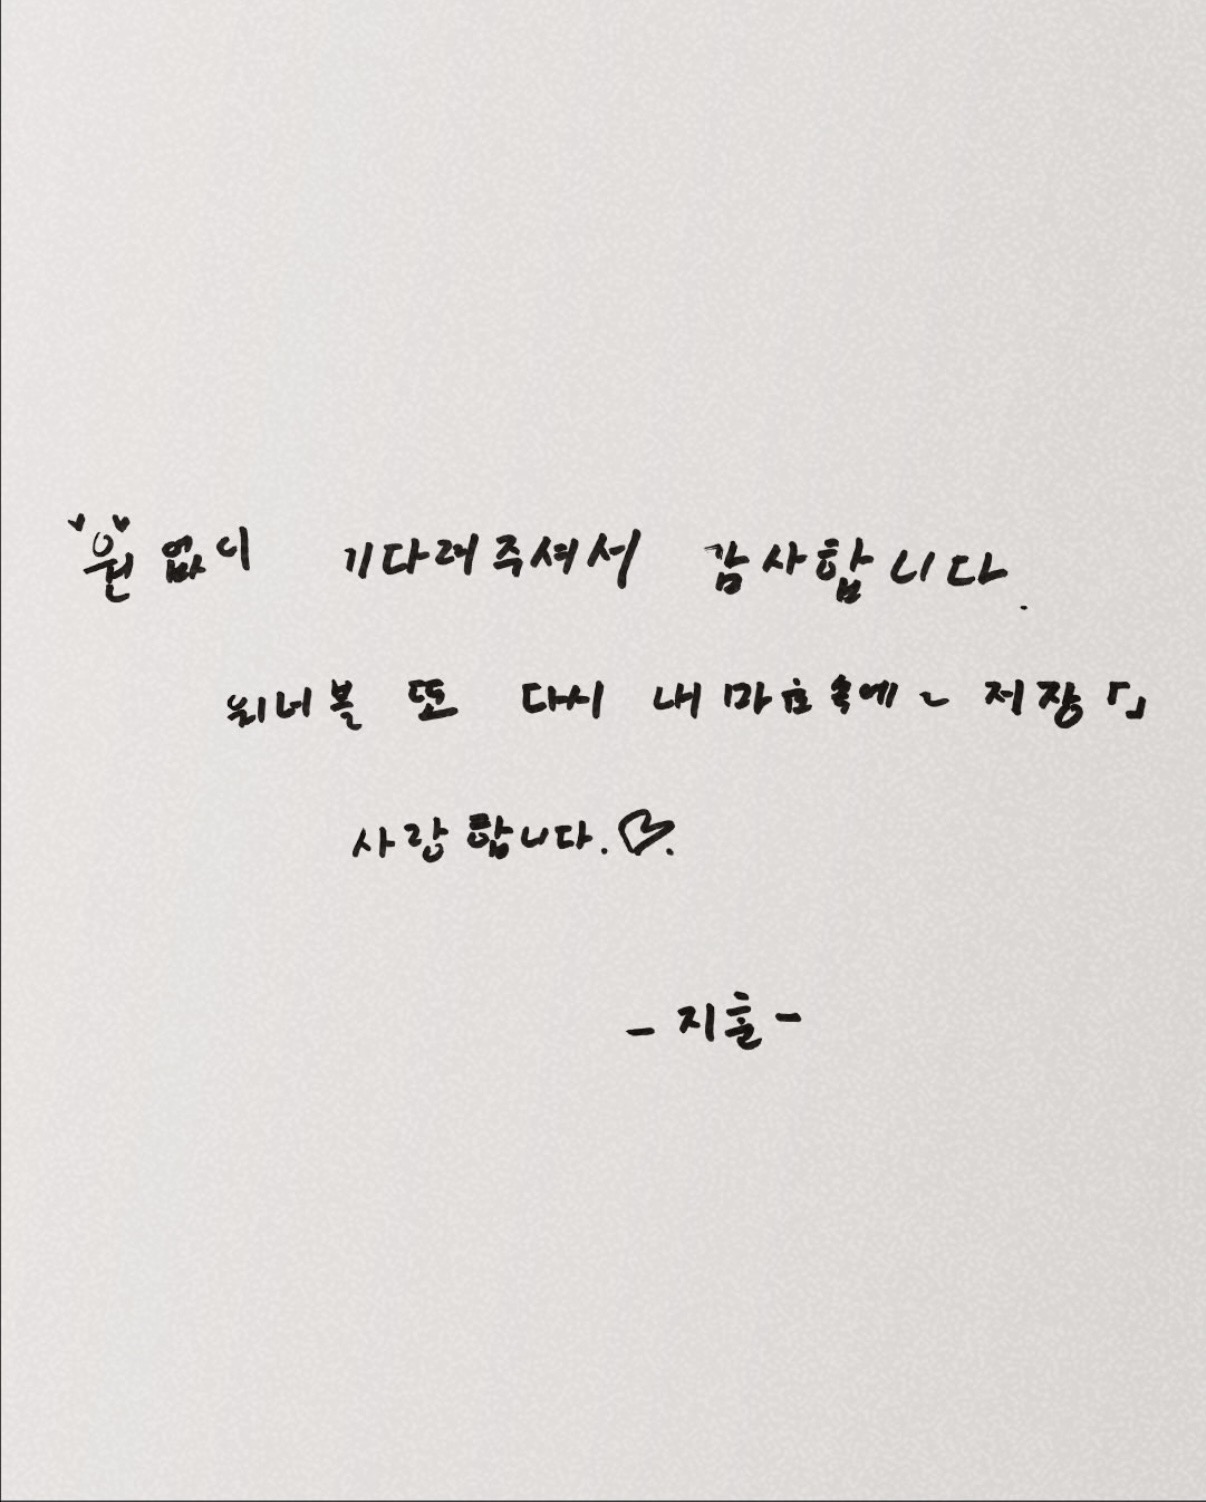 원없이 기다려주셔서 감사합니다.
워너블 또 다시 내 마음속에~ 저장「」
사랑합니다.♡.
- 지훈 -